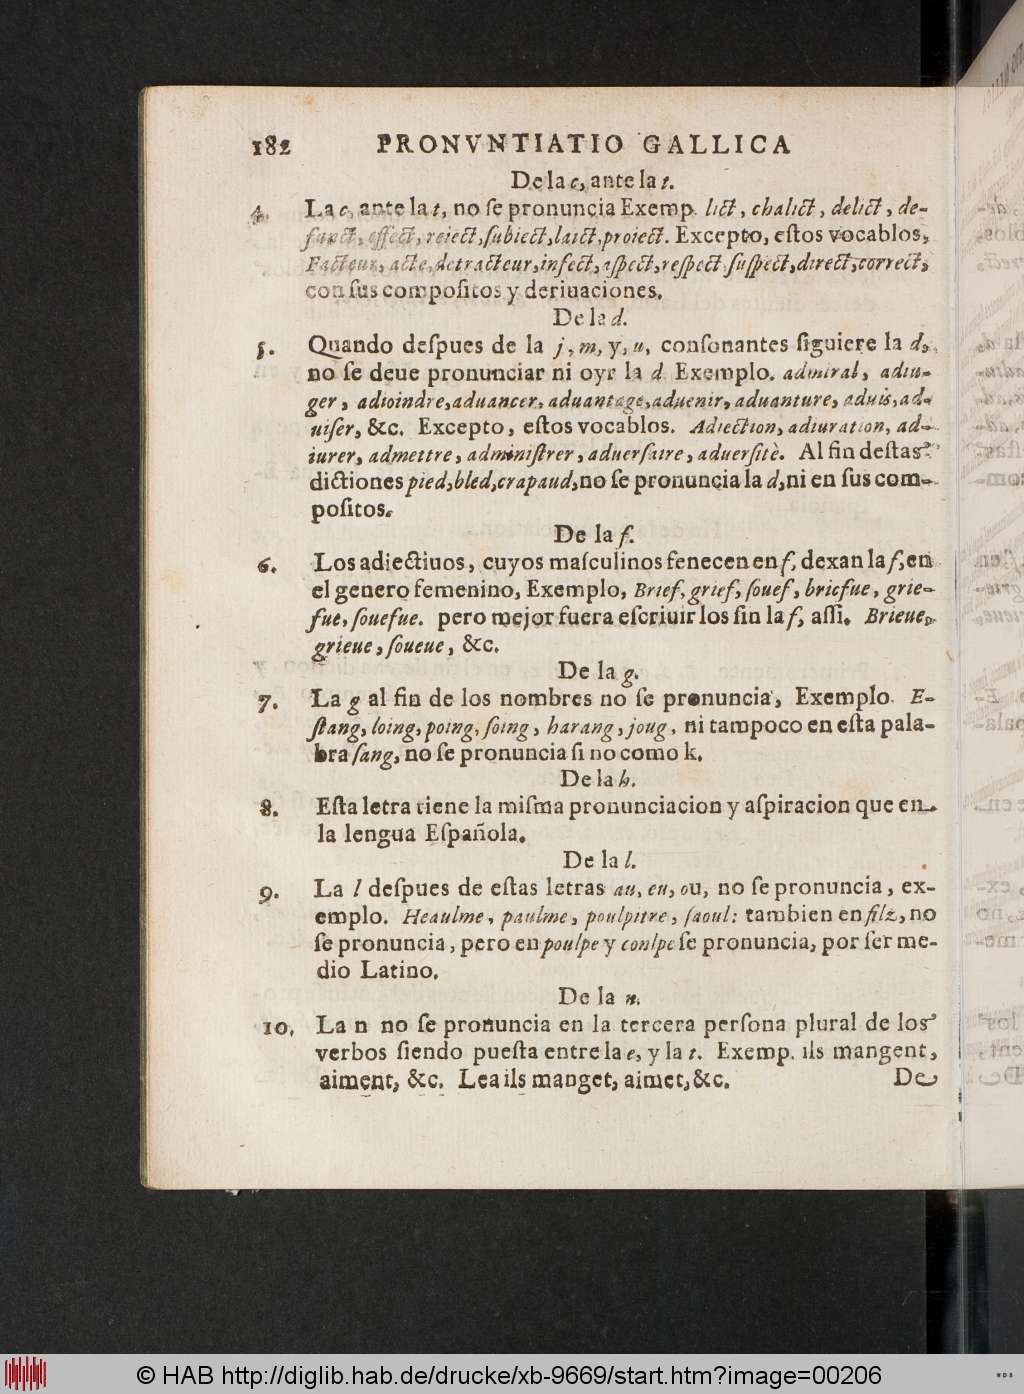 182 PRONVNTIATIO GALLICA
De la c, ante la t.
4. La c, ante la t, no ſe pronuncia Exemp. lict, chalict, delict, de-
funct, effect, reiect, ſubiect, laict, proiect. Excepto, eſtos vocablos,
Facteur, acte, detracteur, infect, aſpect, reſpect ſuſpect, direct, correct,
con ſus compoſitos y deriuaciones.
De la d.
5. Quando deſpues de la j, m, y, u, conſonantes ſiguiere la d,
no ſe deue pronunciar ni oyr la d Exemplo. admiral, adiu-
ger, adioindre, aduancer, aduantage, aduenir, aduanture, aduis, ad-
uiſer, &c. Excepto, eſtos vocablos. Adiection, adiuration, ad-
iurer, admettre, adminiſtrer, aduerſaire, aduerſitè. Al fin deſtas
dictiones pied, bled, crapaud, no ſe pronuncia la d, ni en ſus com-
poſitos.
De la f.
6. Los adiectiuos, cuyos maſculinos fenecen en f, dexan la f, en
el genero femenino, Exemplo, Brief, grief, ſouef, briefue, grie-
fue, ſouefue. pero mejor fuera eſcriuir los ſin la f, aſſi. Brieue,
grieue, ſoueue, &c.
De la g.
7. La g al fin de los nombres no ſe pronuncia, Exemplo. E-
ſtang, loing, poing, ſoing, harang, joug, ni tampoco en eſta pala-
bra ſang, no ſe pronuncia ſi no como k.
De la h.
8. Eſta letra tiene la miſma pronunciacion y aſpiracion que en
la lengua Eſpañola.
De la l.
9. La l deſpues de eſtas letras au, eu, ou, no ſe pronuncia, ex-
emplo. Heaulme, paulme, poulpitre, ſaoul: tambien en filz, no
ſe pronuncia, pero en poulpe y coulpe ſe pronuncia, por ſer me-
dio Latino.
De la n.
10. La n no ſe pronuncia en la tercera perſona plural de los
verbos ſiendo pueſta entre la e, y la t. Exemp. ils mangent,
aiment, &c. Lea ils manget, aimet, &c. De
© HAB http://diglib.hab.de/drucke/xb-9669/start.htm?image=00206